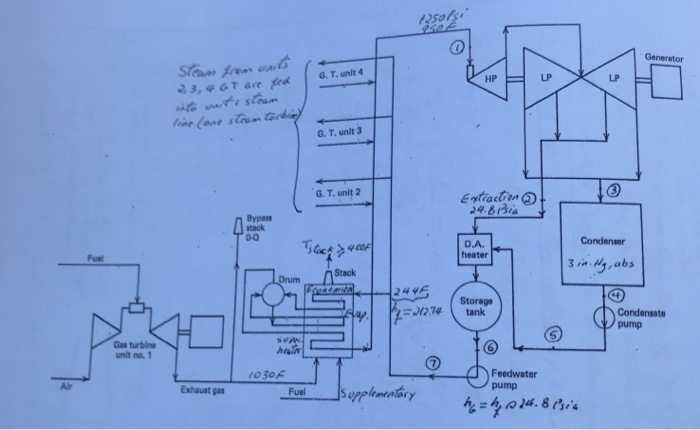 1250 Psi
950F
①
Steam from units
2, 3, 4 GT are fed
into unit 1 steam
line (one steam turbine)
G. T. unit 4
G. T. unit 3
G. T. unit 2
HP
LP
LP
Generator
Extraction ②
24.8 Psia
③
D.A.
heater
Condenser
3 in. Hg, abs
④
Condensate
pump
⑤
Storage
tank
⑥
Feedwater
pump
h6 = hf @ 24.8 Psia
⑦
Bypass
stack
0-0
Tstack ≥ 400F
Stack
Drum
Economizer
Evap.
super
heater
244F
hf = 212.74
Fuel
Gas turbine
unit no. 1
Air
Exhaust gas
1030F
Fuel
Supplementary